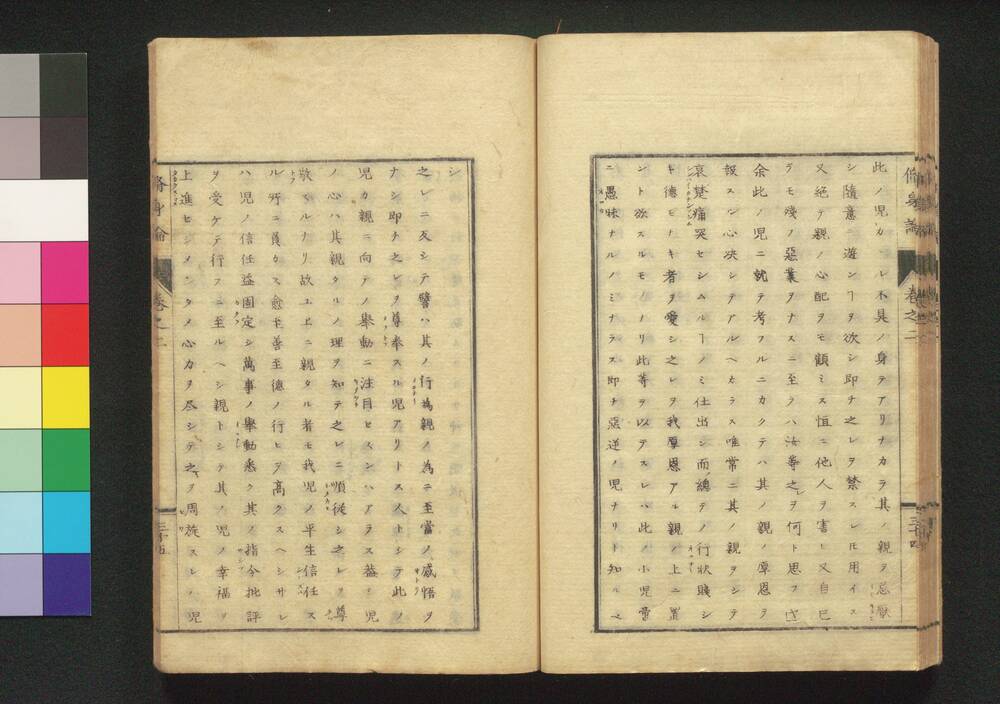 此ノ児カヽレ不具ノ身テアリナカラ其ノ親ヲ忌厭
シ隨意ニ遊ンヿヲ欲シ即チ之レヲ禁スレトモ用イス
又絶テ親ノ心配ヲモ顧ミス恒ニ他人ヲ害ヒ又自己
ラモ殘ノ惡業ヲナスニ至ラハ汝等之ヲ何ト思フ
余此ノ児ニ就テ考フルニカクテハ其ノ親ノ厚恩ヲ
報スルノ心决シテアルヘカラス唯常ニ其ノ親ヲシテ
哀楚痛哭セシムルヿノミ仕出シ而總テノ行狀賤シ
キ德モナキ者ヲ愛シ之レヲ我厚恩アル親ノ上ニ置
ント欲スルモノナリ此等ヲ以テスレハ此ノ小児啻
ニ愚昧ナルノミナラス即チ惡逆ノ児ナリト知ルヘ
脩身論
卷之二
三十四
シ
之レニ反シテ譬ハ其ノ行為親ノ為ニ至當ノ感悟ヲ
ナシ即チ之レヲ尊奉スル児アリトス人トシテ此ノ
児カ親ニ向テノ舉動ニ注目セスンハアラス蓋シ児
ノ心ハ其親タルノ理ヲ知テ之レニ順從シ之レヲ尊
敬スルナリ故ユヱニ親タル者モ我児ノ平生信任ス
ル所ニ負カス愈至善至德ノ行ヒヲ高クスヘシサレ
ハ児ノ信任益固定シ萬事ノ舉動悉ク其ノ指令批評
ヲ受ケテ行フニ至ルヘシ親トシテ其ノ児ノ幸福ヲ
上進セシメンタメ心力ヲ尽シテ之ヲ周旋スレハ児
脩身論
卷之二
三十五